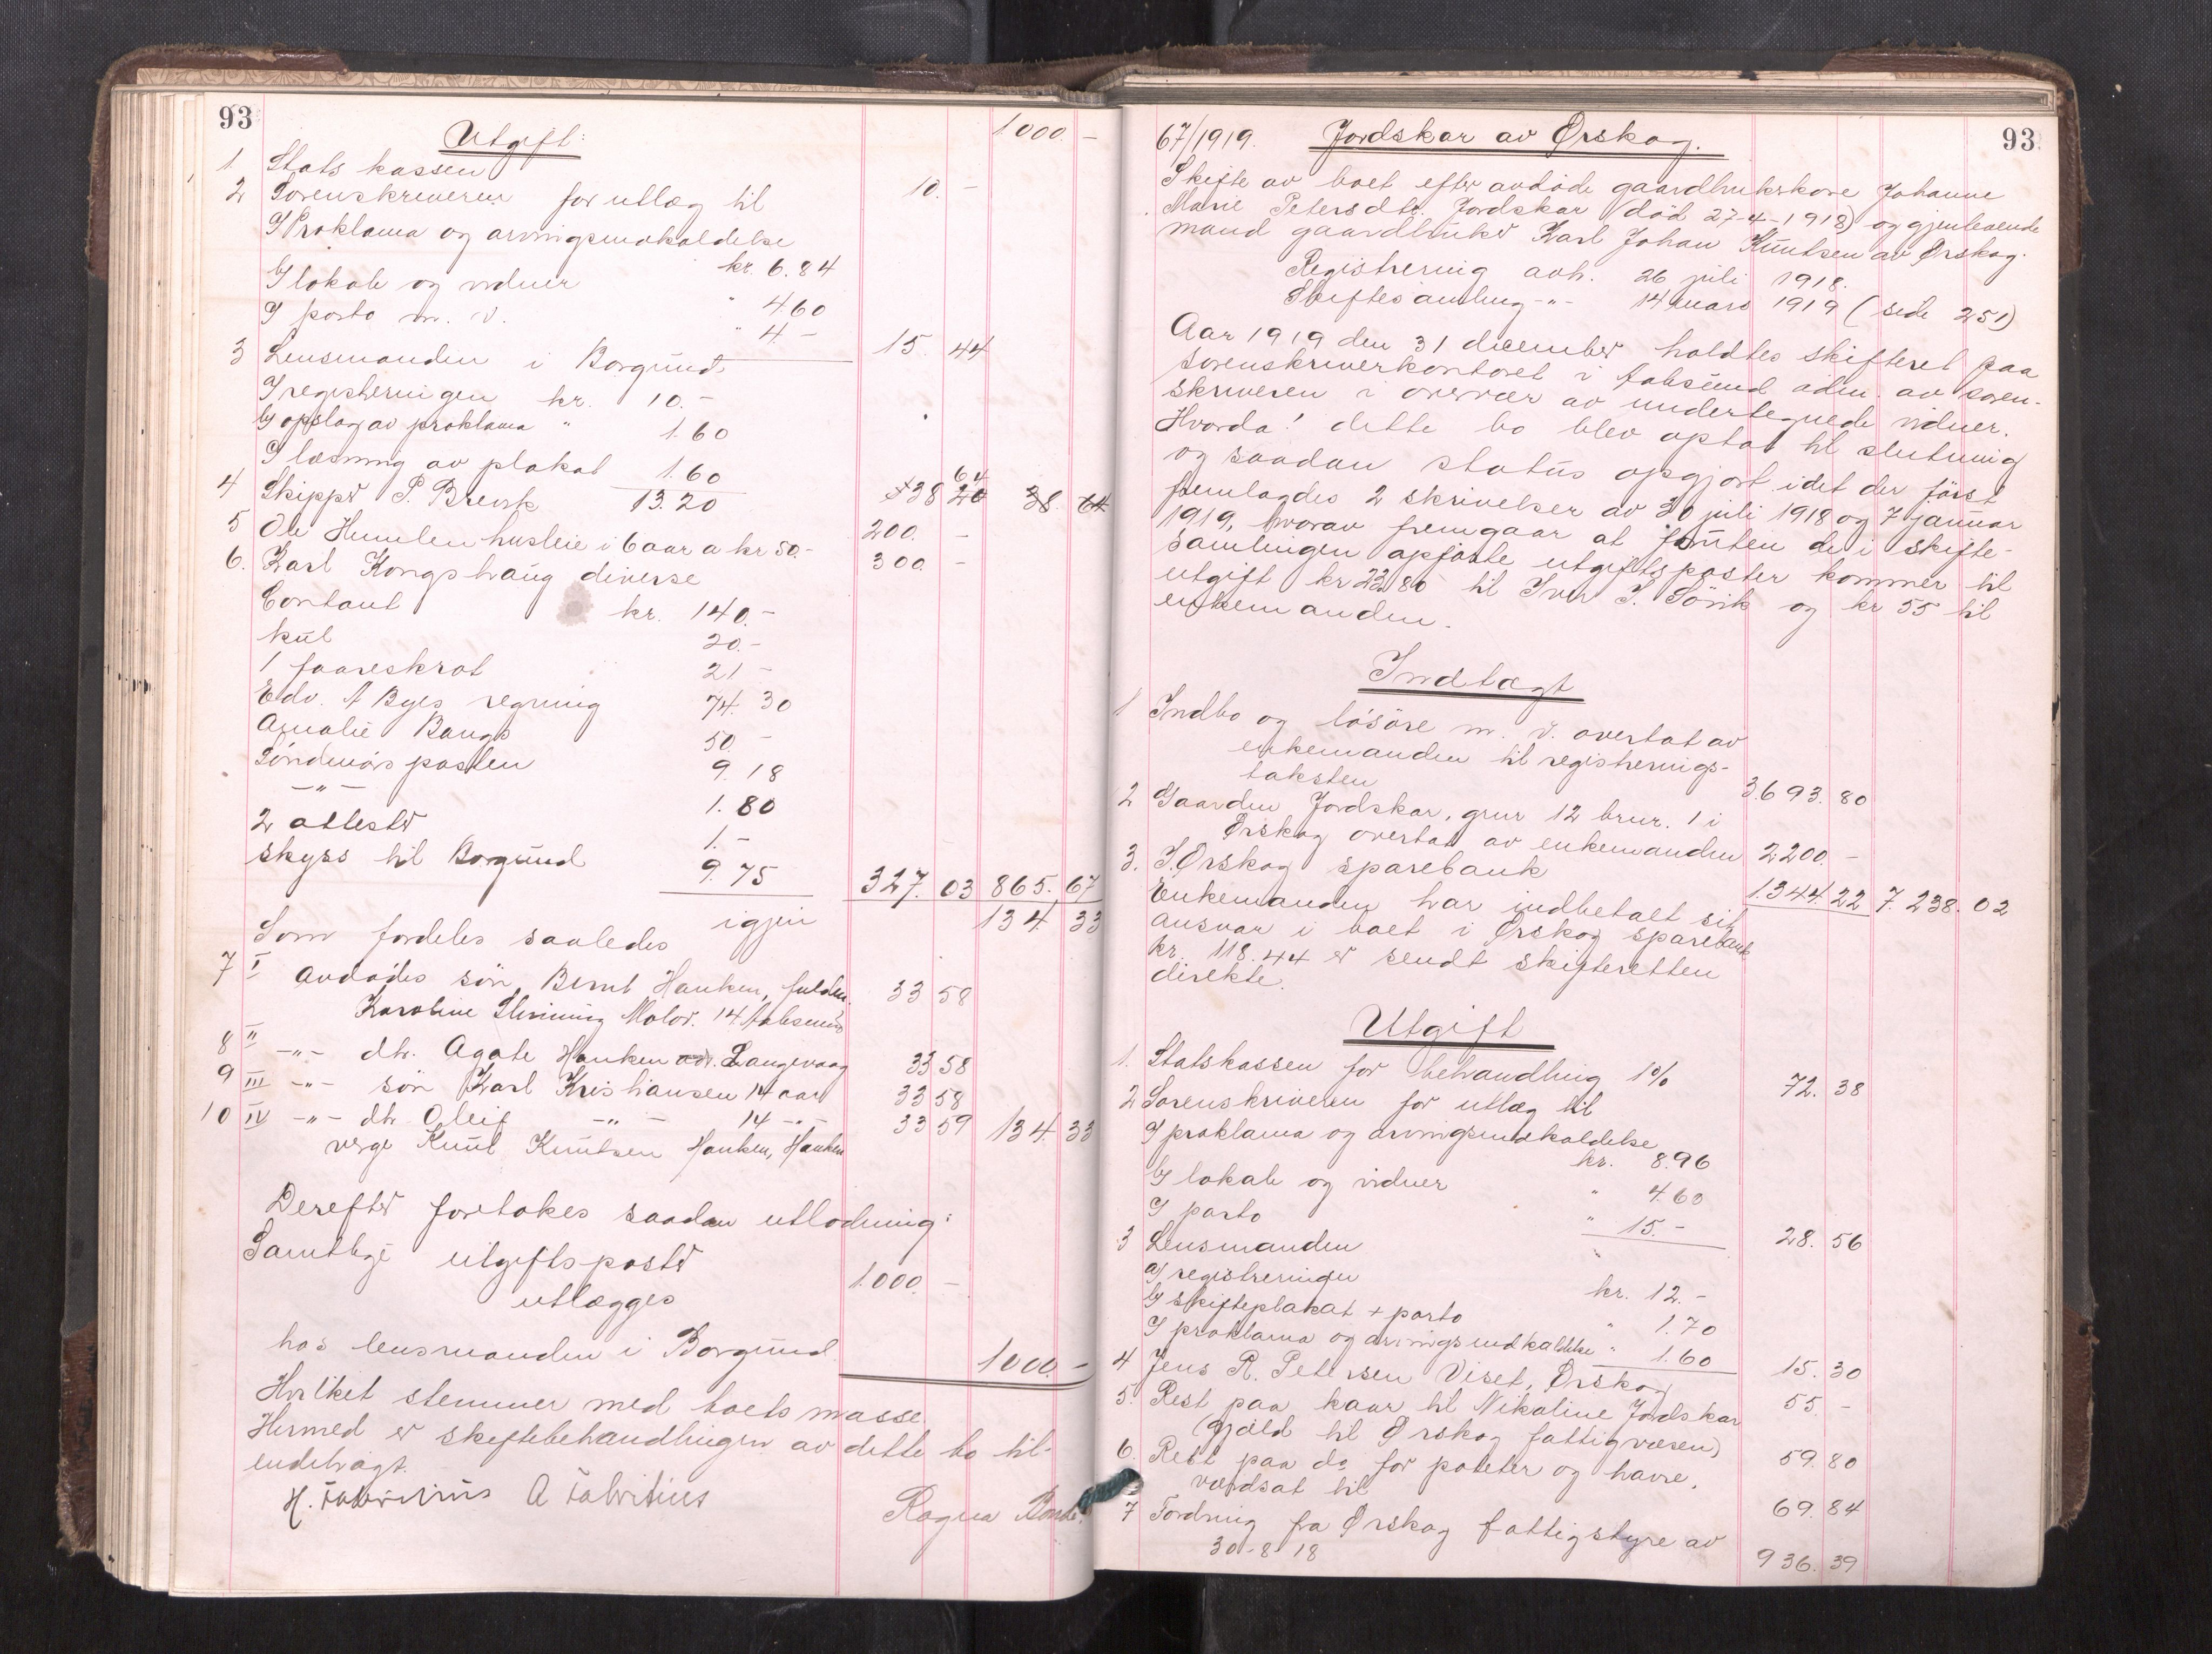 93
Utgift:
1000. -
1 Stats kassen 10. -
2 Sorenskriveren for utlæg til
a/ Proklama og arvingsindkaldelse
kr. 6.84
b/ lokale og vidner " 4.60
c/ porto m. v. " 4 - 15 44
3 Lensmanden i Borgund
a/ registreringen kr. 10.-
b/ opslag av proklama " 1.60
c/ læsning av plakat 1.60
13.20
4 Skipper P. Brevik 38 64 38. 64
5 Ole Humlen husleie i 6 aar a kr 50.- 200. -
6. Karl Kongshaug diverse 300. -
Contant kr. 140.-
kul 20.-
1 faareskrot 21 -
Edv. A Byes regning 74. 30
Amalie Bangs 50. -
Söndmörsposten 9. 18
- " - 1. 80
2 attester 1. -
skyss til Borgund 9. 75 327. 03 865. 67
igjen 134. 33
Som fordeles saaledes
7 I Avdödes sön Bernt Hanken, fuldm. 33 58
Karoline Slinning Molov. 14 Aalesund
8 II -"- dtr. Agate Hanken adr. Langevaag 33 58
9 III -"- sön Karl Kristiansen 14 aar 33 58
10 IV -"- dtr Oleif -"- 14 -"- 33 59 134. 33
verge Knut Knutsen Hanken, Hanken
Derefter foretokes saadan utlodning:
Samtlige utgiftsposter 1.000. -
utlægges
hos lensmanden i Borgund 1000. -
Hvilket stemmer med boets masse.
Hermed er skiftebehandlingen av dette bo til-
endebragt.
H. Fabritius A Fabritius
Ragna
93
67/1919. Jordskar av Ørskog.
Skifte av boet efter avdöde gaardbrukerkone Johanne
Marie Petersdtr. Jordskar (död 27-4-1918) og gjenlevende
mand gaardbruker Karl Johan Knutsen av Ørskog.
Registrering avh. 26 juli 1918.
Skiftesamling -"- 14 mars 1919 (side 251)
Aar 1919 den 31 december holdtes skifteret paa
sorenskriverkontoret i Aalesund adm. av soren-
skriveren i overvær av undertegnede vidner.
Hvorda! dette bo blev optat til slutning
og saadan status opgjort idet der först
fremlagdes 2 skrivelser av 30 juli 1918 og 7 januar
1919, hvorav fremgaar at foruten de i skifte-
samlingen opförte utgiftsposter kommer til
utgift kr 23.80 til Iver I. Sörik og kr 55 til
enkemanden.
Indtægt
1 Indbo og lösöre m. v. overtat av
enkemanden til registrerings-
taksten 3.693. 80
2 Gaarden Jordskar, gnr 12 brnr. 1 i
Ørskog overtat av enkemanden 2200. -
3. I Ørskog sparebank 1.344. 22 7. 238. 02
Enkemanden har indbetalt sit
ansvar i boet i Ørskog sparebank
kr. 118.44 er sendt skifteretten
direkte.
Utgift
1. Statskassen for behandling 1% 72. 38
2 Sorenskriveren for utlæg til
a/ proklama og arvingsindkaldelse
kr. 8.96
b/ lokale og vidner " 4.60
c/ porto " 15.- 28. 56
3 Lensmanden
a/ registreringen kr. 12. -
b/ skifteplakat + porto " 1.70
c/ proklama og arvingsindkaldelse " 1.60 15. 30
4 Jens R. Petersen Viset, Ørskog 55. -
5. Rest paa kaar til Nikoline Jordskar
(gjæld til Ørskog fattigvæsen) 59. 80
6. Rest paa do for poteter og havre,
værdsat til 69. 84
7 Fordring fra Ørskog fattigstyre av
30-8-18 936. 39